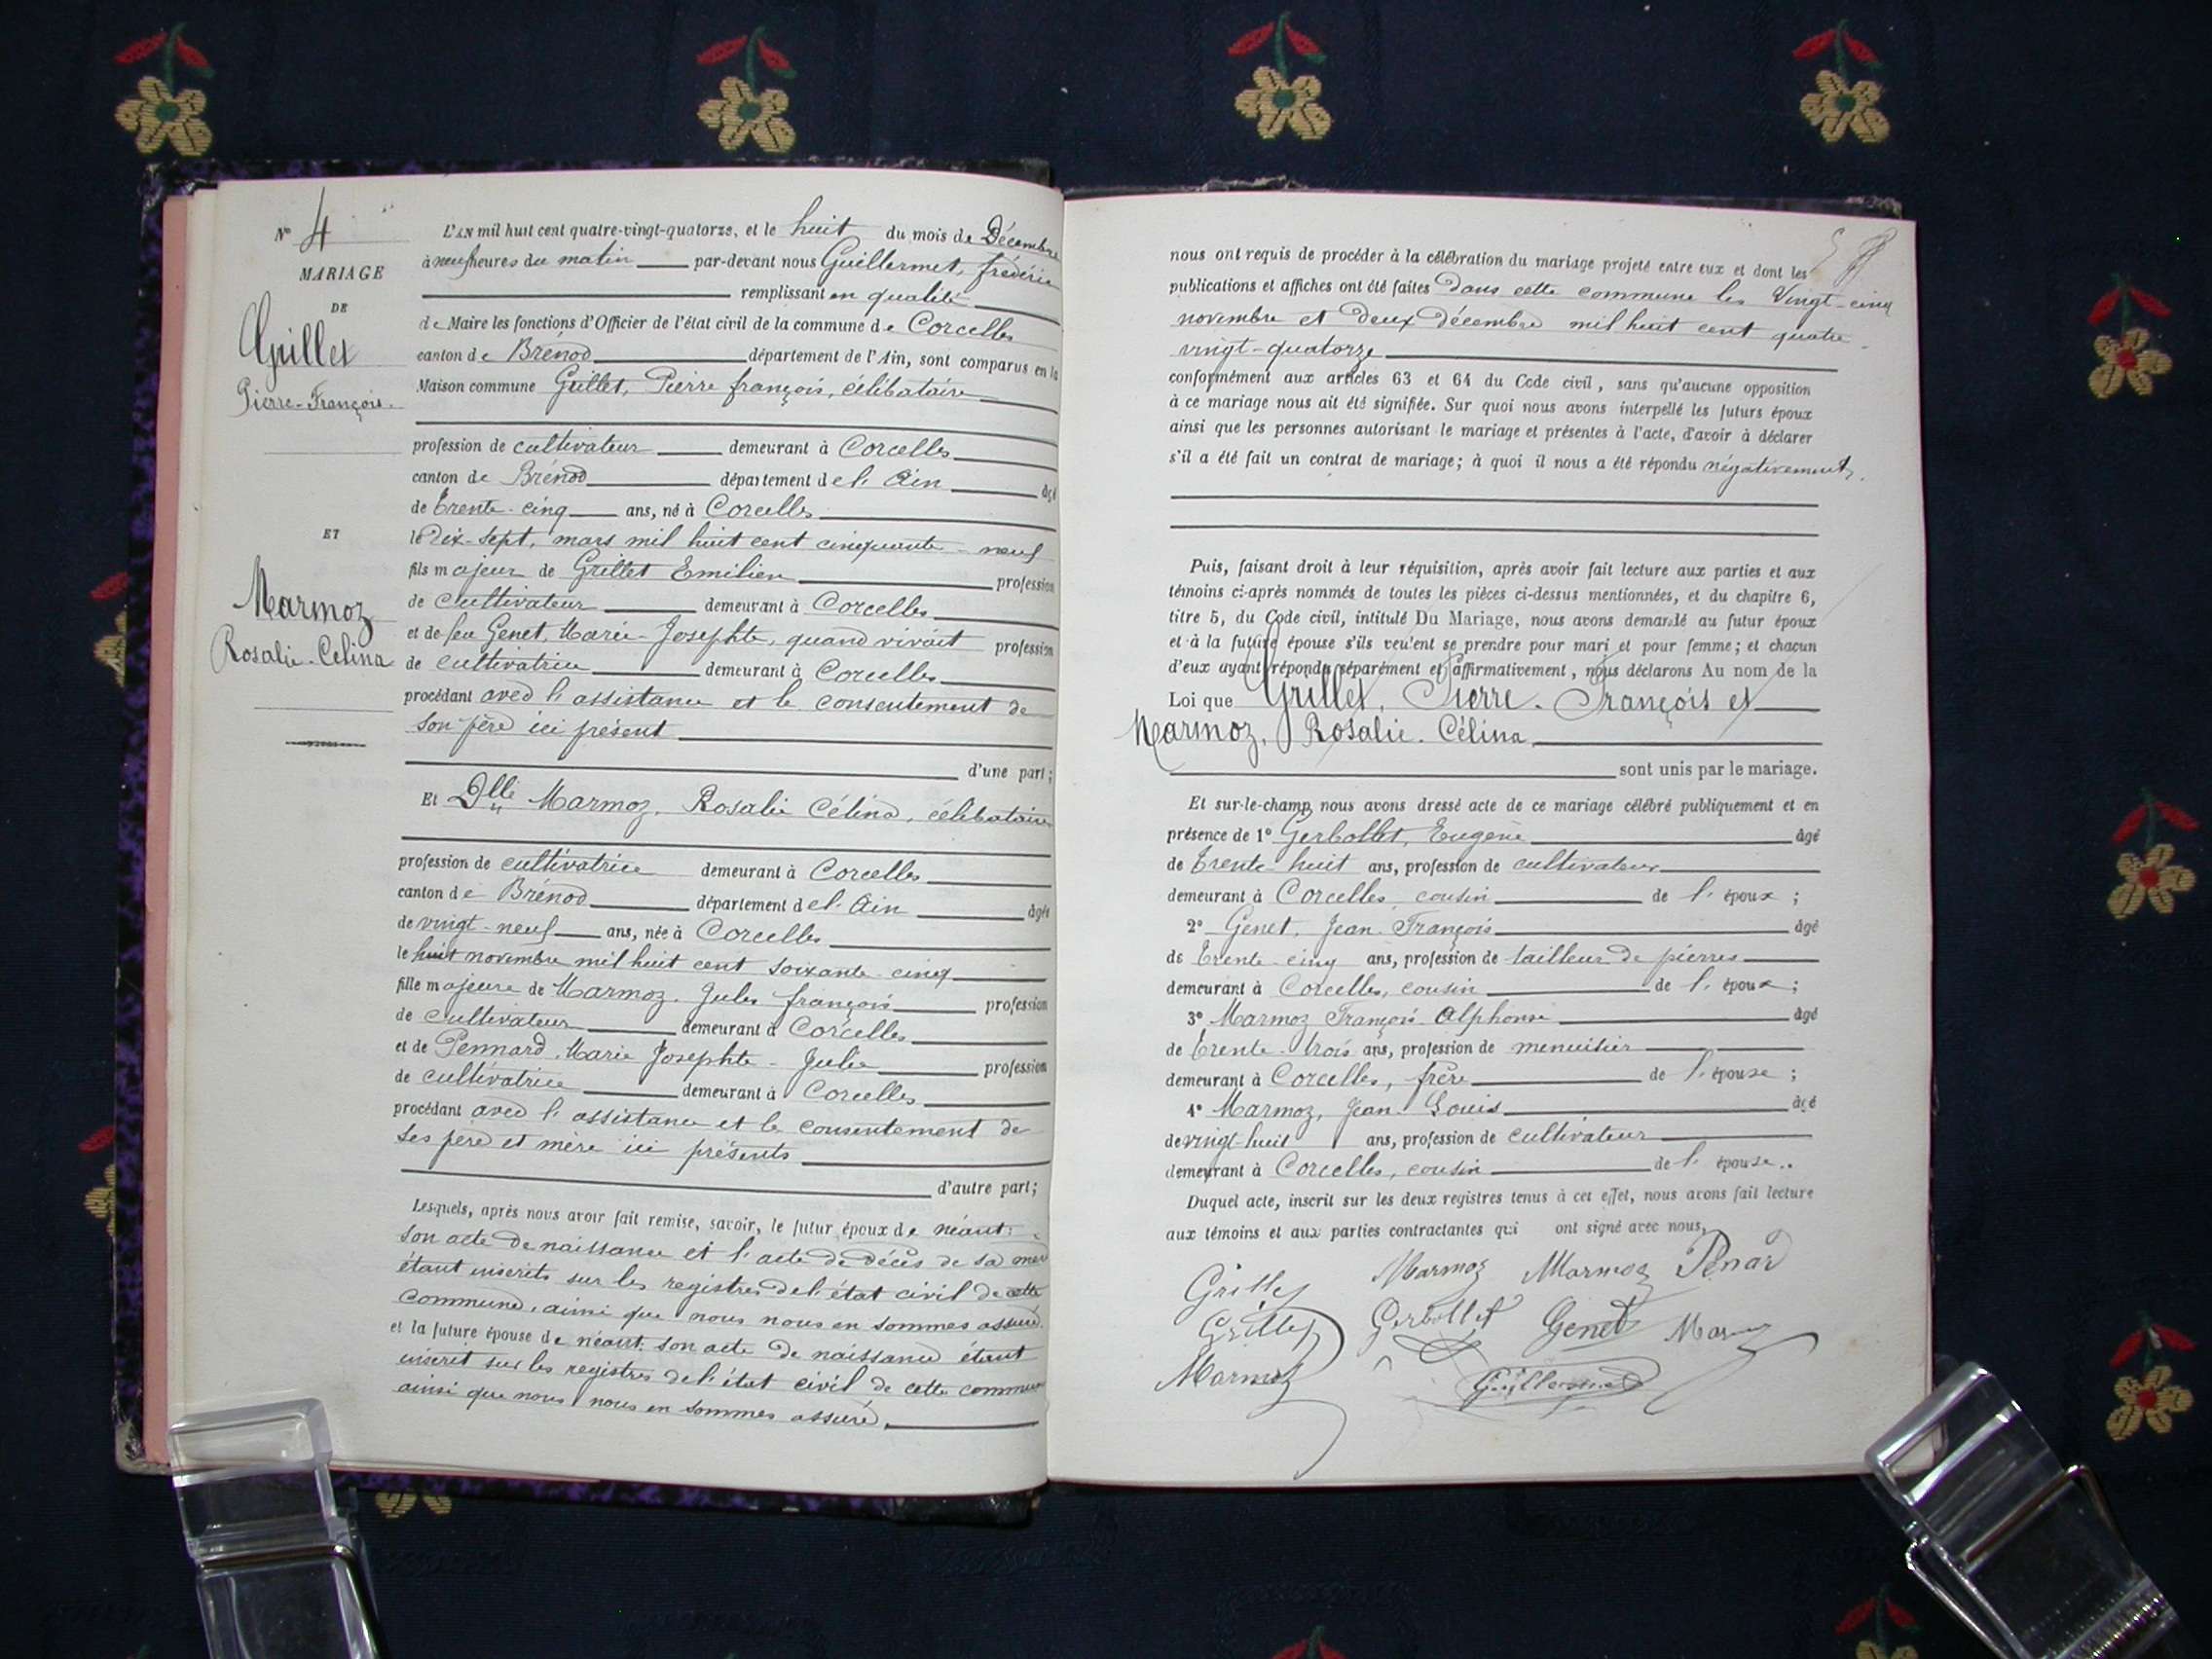 N° 4
MARIAGE
DE
Grillet
Pierre-François.
ET
Marmoz
Rosalie-Celina
L'AN mil huit cent quatre-vingt-quatorze, et le huit du mois de Décembre
à neuf heures du matin par-devant nous Guillermet, frédéric
remplissant en qualité
de Maire les fonctions d'Officier de l'état civil de la commune de Corcelles
canton de Brénod département de l'Ain, sont comparus en la
Maison commune Grillet, Pierre françois, célibataire
profession de cultivateur demeurant à Corcelles
canton de Brénod département de l'Ain âgé
de trente-cinq ans, né à Corcelles
le Dix-sept, mars mil huit cent cinquante-neuf
fils majeur de Grillet Emilien profession
de cultivateur demeurant à Corcelles
et de feu Genet, Marie-Josephte, quand vivait profession
de cultivatrice demeurant à Corcelles
procédant avec l'assistance et le consentement de
son père ici présent
d'une part;
Et Dlle Marmoz, Rosalie Célina, célibataire
profession de cultivatrice demeurant à Corcelles
canton de Brénod département de l'Ain âgée
de vingt-neuf ans, née à Corcelles
le huit novembre mil huit cent soixante-cinq
fille majeure de Marmoz. Jules françois profession
de cultivateur demeurant à Corcelles
et de Pennard, Marie Josephte-Julie profession
de cultivatrice demeurant à Corcelles
procédant avec l'assistance et le consentement de
ses père et mère ici présents
d'autre part;
Lesquels, après nous avoir fait remise, savoir, le futur époux de néant:
son acte de naissance et l'acte de décès de sa mère
étant inscrits sur les registres de l'état civil de cette
commune, ainsi que nous nous en sommes assuré.
et la future épouse de néant: son acte de naissance étant
inscrit sur les registres de l'état civil de cette commune
ainsi que nous nous en sommes assuré.
nous ont requis de procéder à la célébration du mariage projeté entre eux et dont les
publications et affiches ont été faites dans cette commune les Vingt-cinq
novembre et deux décembre mil huit cent quatre-
vingt-quatorze
conformément aux articles 63 et 64 du Code civil, sans qu'aucune opposition
à ce mariage nous ait été signifiée. Sur quoi nous avons interpellé les futurs époux
ainsi que les personnes autorisant le mariage et présentes à l'acte, d'avoir à déclarer
s'il a été fait un contrat de mariage; à quoi il nous a été répondu négativement.
Puis, faisant droit à leur réquisition, après avoir fait lecture aux parties et aux
témoins ci-après nommés de toutes les pièces ci-dessus mentionnées, et du chapitre 6,
titre 5, du Code civil, intitulé Du Mariage, nous avons demandé au futur époux
et à la future épouse s'ils veulent se prendre pour mari et pour femme; et chacun
d'eux ayant répondu séparément et affirmativement, nous déclarons Au nom de la
Loi que Grillet, Pierre-François et
Marmoz, Rosalie-Célina
sont unis par le mariage.
Et sur-le-champ nous avons dressé acte de ce mariage célébré publiquement et en
présence de 1° Gerbollet, Eugène âgé
de trente-huit ans, profession de cultivateur
demeurant à Corcelles, cousin de l'époux;
2° Genet, Jean-François âgé
de trente-cinq ans, profession de tailleur de pierres
demeurant à Corcelles, cousin de l'époux;
3° Marmoz François-Alphonse âgé
de trente-trois ans, profession de menuisier
demeurant à Corcelles, frère de l'épouse;
4° Marmoz, Jean-Louis âgé
de vingt-huit ans, profession de cultivateur
demeurant à Corcelles, cousin de l'épouse..
Duquel acte, inscrit sur les deux registres tenus à cet effet, nous avons fait lecture
aux témoins et aux parties contractantes qui ont signé avec nous,
Grillet Marmoz Marmoz Penard
Grillet Gerbollet Genet Marmoz
Marmoz Guillermet